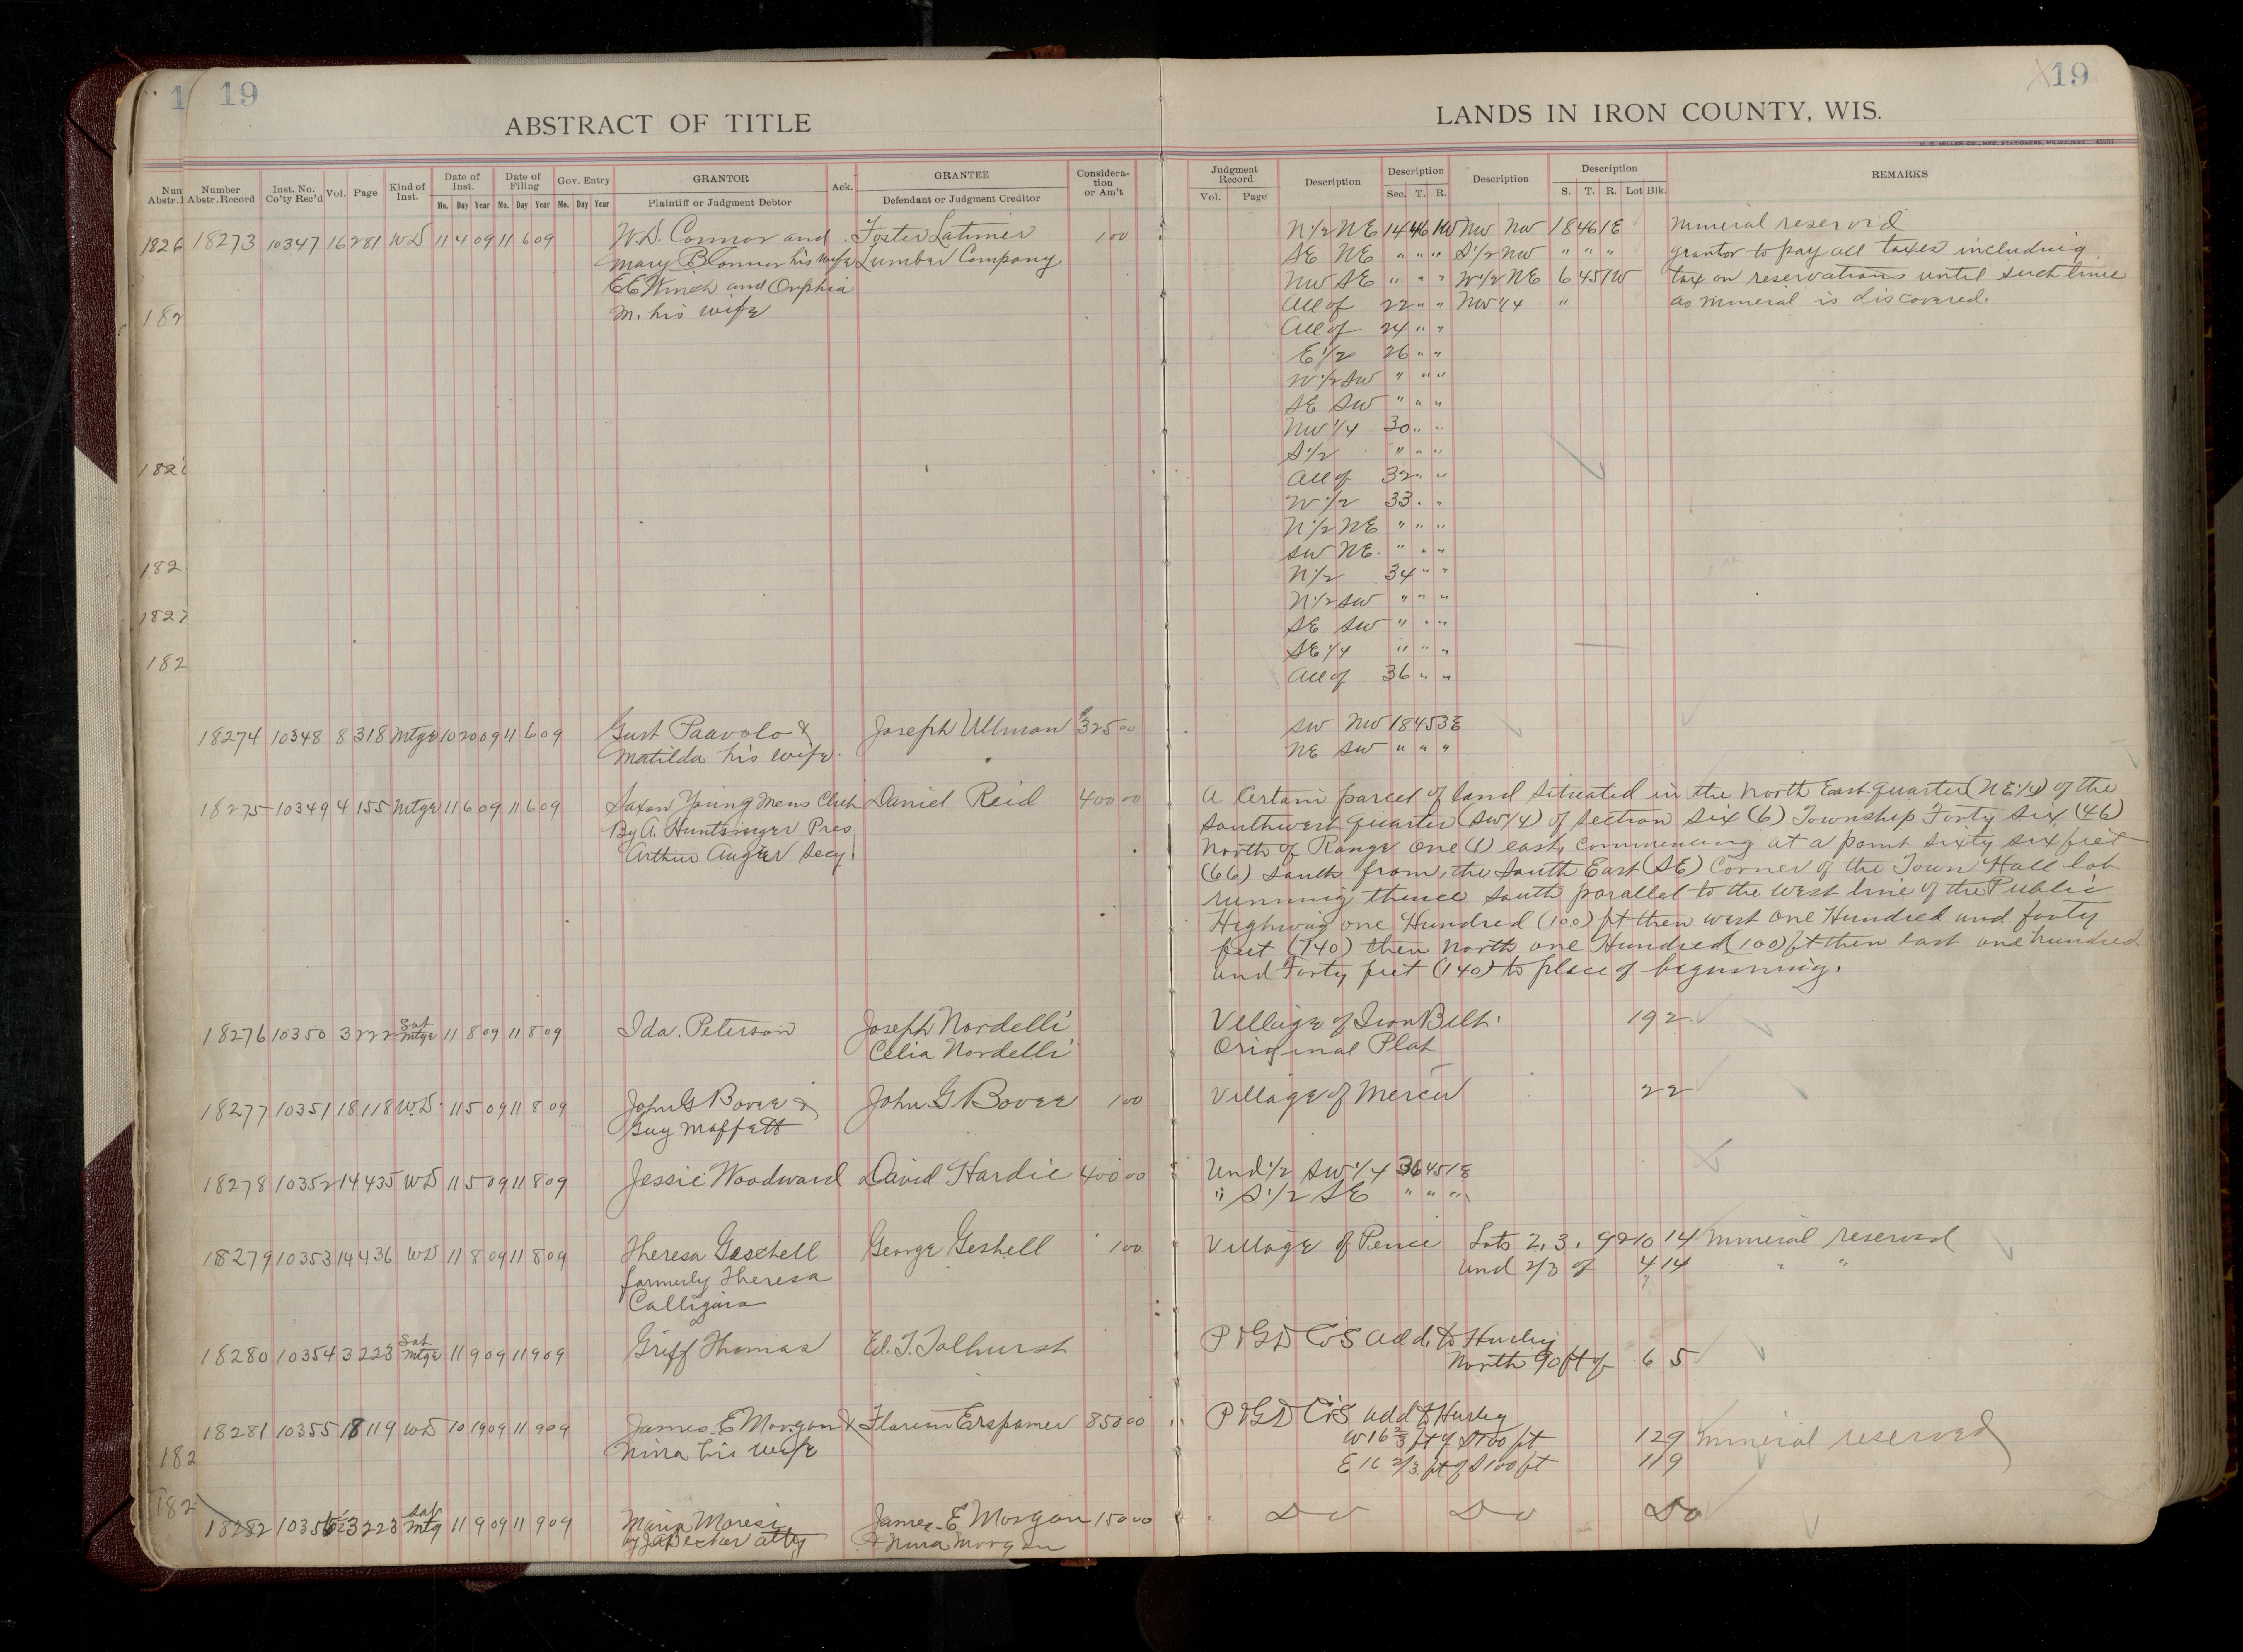 1 19
ABSTRACT OF TITLE
Num Abstr. Number Abstr.Record Inst. No. Co'ty Rec'd Vol. Page Kind of Inst. Date of Inst. Mo. Day Year Date of Filing Mo. Day Year Gov. Entry Mo. Day Year GRANTOR Plaintiff or Judgment Debtor Ack. GRANTEE Defendant or Judgment Creditor Considera-tion or Am't
1826 18273 10347 16 281 WD 11 4 09 11 6 09 W.D. Connor and Foster Latimer 1 00
Mary B Connor his wife Lumber Company
E E Winch and Orphia
182 M. his wife
182
182
1827
182
18274 10348 8 318 Mtge 10 20 09 11 6 09 Gust Paavolo & Joseph Ullman $325 00
Matilda his wife.
18275 10349 4 155 Mtge 11 6 09 11 6 09 Saxon Young Mens Club Daniel Reid 400 00
By A. Huntsinger Pres
Arthur Augier Secy.
18276 10350 3 222 Sat Mtge 11 8 09 11 8 09 Ida. Peterson Joseph Nordelli
Celia Nordelli
18277 10351 18 118 W.D. 11 5 09 11 8 09 John G Bovee & John G Bovee 1 00
Guy Moffett
18278 10352 14 435 WD 11 5 09 11 8 09 Jessie Woodward David Hardie 400 00
18279 10353 14 436 WD 11 8 09 11 8 09 Theresa Geschell George Geshell 1 00
formerly Theresa
Calligaro
18280 10354 3 223 Sat Mtge 11 9 09 11 9 09 Griff Thomas Ed. T. Tolhurst
18281 10355 18 119 WD 10 19 09 11 9 09 James E Morgan & Florian Erspamer 850 00
182 Nina his wife
182 18282 10356 3 223 Sat Mtg 11 9 09 11 9 09 Maria Moresi James E Morgan 150 00
by J A Becker atty & Nina Morgan
19
LANDS IN IRON COUNTY, WIS.
H. C. MILLER CO., MFG. STATIONERS, MILWAUKEE
Judgment Record Vol. Page Description Description Sec. T. R. Description Description S. T. R. Lot Blk. REMARKS
N 1/2 NE 14 46 1W NW NW 18 46 1E Mineral reserved
SE NE " " " S 1/2 NW " " " grantor to pay all taxes including
NW SE " " " W 1/2 NE 6 45 1W tax on reservations until such time
All of 22 " " NW 1/4 " as mineral is discovered.
All of 24 " "
E 1/2 26 " "
W 1/2 SW " " "
SE SW " " "
NW 1/4 30 " "
S 1/2 " " "
All of 32 " "
W 1/2 33 " "
N 1/2 NE " " "
SW NE. " " "
N 1/2 34 " "
N 1/2 SW " " "
SE SW " " "
SE 1/4 " " "
All of 36 " "
SW NW 18 45 3E
NE SW " " "
A Certain parcel of land Situated in the North East quarter (NE 1/4) of the
Southwest quarter (SW 1/4) of Section Six (6) Township Forty Six (46)
North of Range One (1) east, Commencing at a point Sixty six feet
(66) South from, the South East (SE) Corner of the Town Hall lot
running thence South parallel to the West line of the Public
Highway one Hundred (100) ft then west One Hundred and forty
feet (140) then North one Hundred (100) ft then east one hundred
and Forty feet (140) to place of beginning.
Village of Iron Belt. 19 2
Original Plat
Village of Mercer 2 2
Und 1/2 SW 1/4 36 45 1E
" S 1/2 SE " " "
Village of Pence Lots 2, 3, 9 & 10 14 Mineral reserved
Und 2/3 of 4 14 " "
P & GD Co's Add. to Hurley
North 90 ft of 6 5
P & GD Co's add to Hurley
W 16 2/3 ft of S 100 ft 12 9 Mineral reserved
E 16 2/3 ft of S 100 ft 11 9
Do Do Do